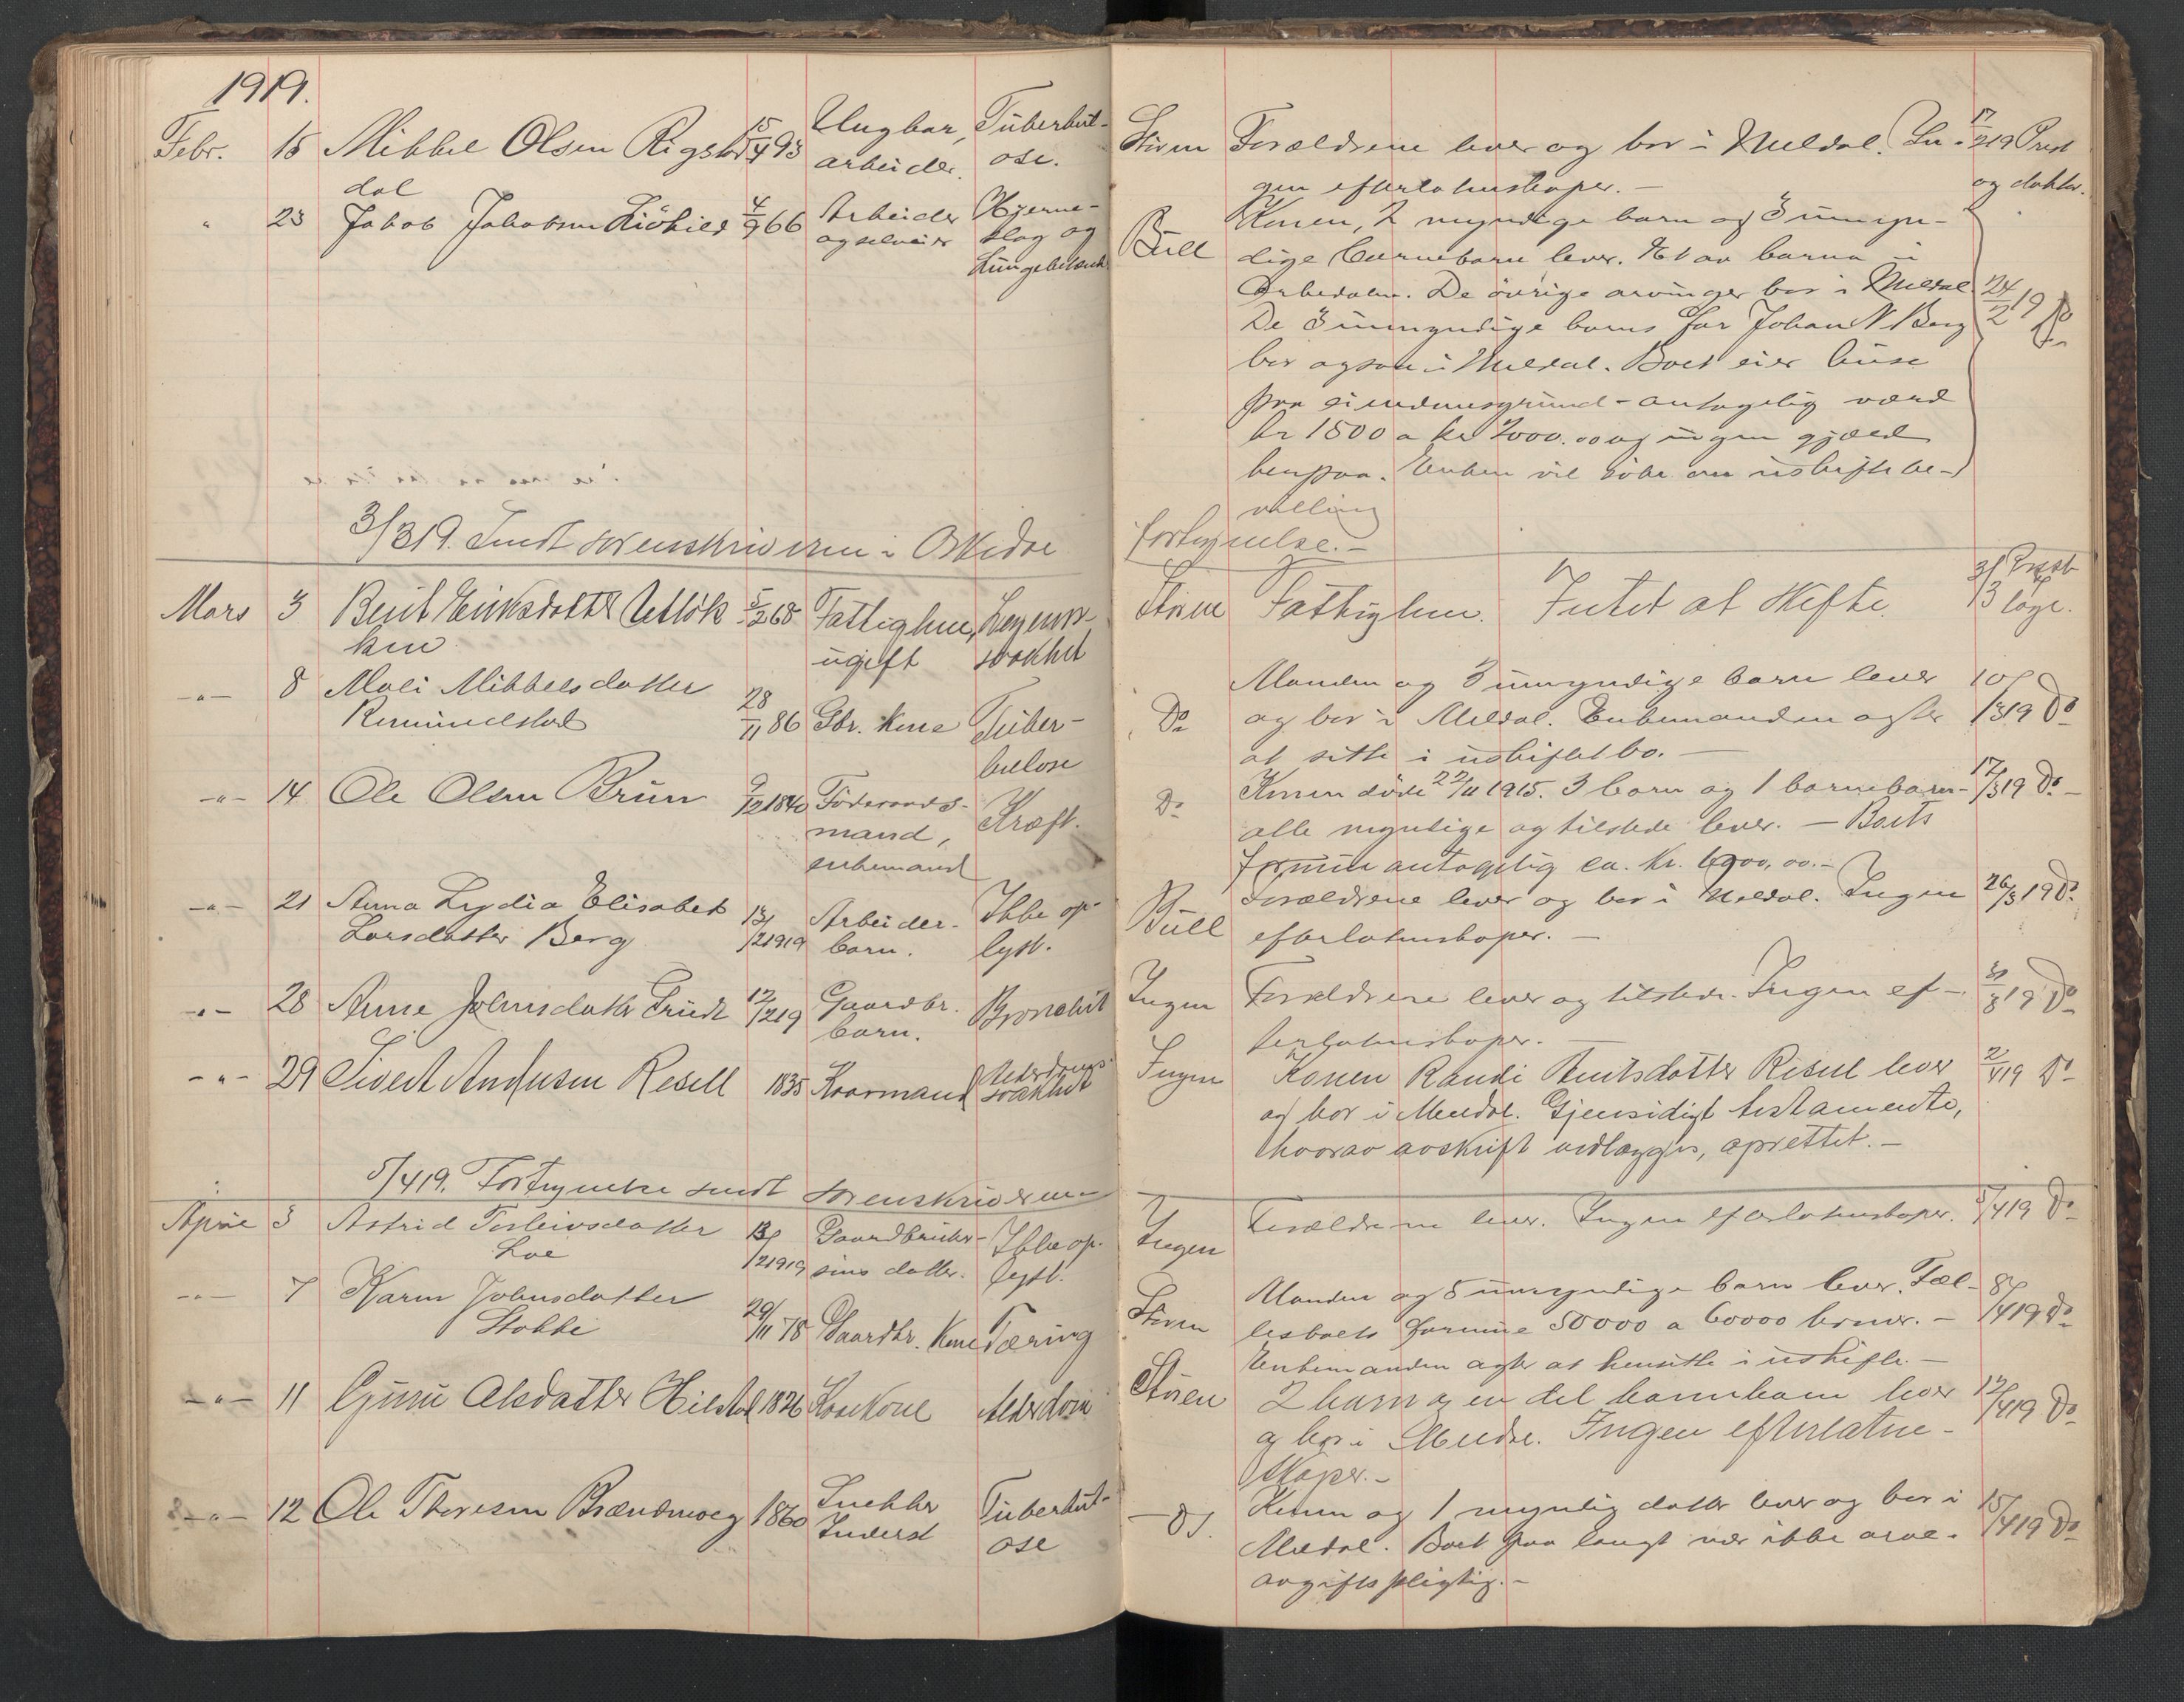 1919.
Febr. 15 Mikkel Olsen Rigstad- 15/4 93 Ungkar, Tuberkul-
dal arbeider. ose.
" 23 Jakob Jakobsen 4/9 66 Arbeider Hjerne-
og selveier slag og
Lungebetænd
3/3 19. Sendt sorenskriveren i Orkedal
Mars 3 Berit Eriksdatter Utløk- 5/2 68 Fattiglem, Legems-
ken ugift svakhet
-"- 8 Mali Mikkelsdatter 28
Remmindstad /11 86 Gbr. kone Tuber-
kulose
-"- 14 Ole Olsen Bruun 9/12 1840 Föderaads- Kræft.
mand,
enkemand
-"- 21 Anna Lydia Elisabet 13/ Arbeider- Ikke op-
Larsdatter Berg /2 1919 barn. lyst.
-"- 28 Anne Johnsdatter 12/2 19 Gaardbr. Bronchit
barn.
-"- 29 Sivert Andersen Resell 1835 Kaarmand Alderdoms-
svakhet
5/4 19. Fortegnelse sendt sorenskriveren
April 3 Astrid Torleivsdatter 13/ Gaardbruker- Ikke op-
Loe /2 1919 ens datter. lyst.
-"- 7 Karen Johnsdatter
Stokke 29/11 78 Gaardbr. Kone Tæring
-"- 11 Guru Olsdatter Hilstad 1826 Kaarkone Alderdom
-"- 12 Ole Thoresen Brændmoeg 1860 Snekker Tuberkul-
Inderst ose
Støren Forældrene lever og bor i Meldal. In- 17/2 19 Prest
gen efterlatenskaper. - og doktor.
Konen, 2 myndige barn og 3 umyn-
Bull dige barnebarn lever. Et av barna i
Orkedalen. De övrige arvinger bor i Meldal 24/2 19 Do
De 3 umyndige barns far Johan N Berg
bor ogsaa i Meldal. Boet eier huse
paa eiendomsgrund - antagelig værd
kr 1500 a kr 2000.00 og ingen gjæld
herpaa. Enken vil söke om uskiftebe-
villing
fortegnelse. -
Støren Fattiglem. Intet at skifte. 3/3 Prest læge.
Manden og 3 umyndige barn lever 10/
Do og bor i Meldal. Enkemanden agter /3 19 Do
at sitte i uskiftet bo. -
Konen døde 22/11 1915. 3 barn og 1 barnebarn- 17/3 19 Do -
Do alle myndige og tilstede lever. - Boets
formue antagelig ca. kr. 6000,00. -
Forældrene lever og bor i Meldal. Ingen 26/3 19 Do
Bull efterlatenskaper. -
Ingen Forældrene lever og tilstede. Ingen ef- 31/3 19 Do
terlatenskaper. -
Ingen Konen Randi Bentsdatter Resell lever 2/4 19 Do
og bor i Meldal. Gjensidigt testamente,
hvorav avskrift vedlægges, oprettet. -
Ingen Forældrene lever. Ingen efterlatenskaper. 5/4 19 Do
Manden og 5 umyndige barn lever. Fæl- 8/
Støren lesboets formue 50000 a 60000 kroner. - /4 19 Do
Enkemanden agter at hensitte i uskifte. -
Støren 2 barn og en del barnebarn lever 12/4 19 Do
og bor i Meldal. Ingen efterlaten-
skaper. -
- Do. Konen og 1 myndig datter lever og bor i 15/4 19 Do
Meldal. Boet paa langt nær ikke arve-
avgiftspligtig. -